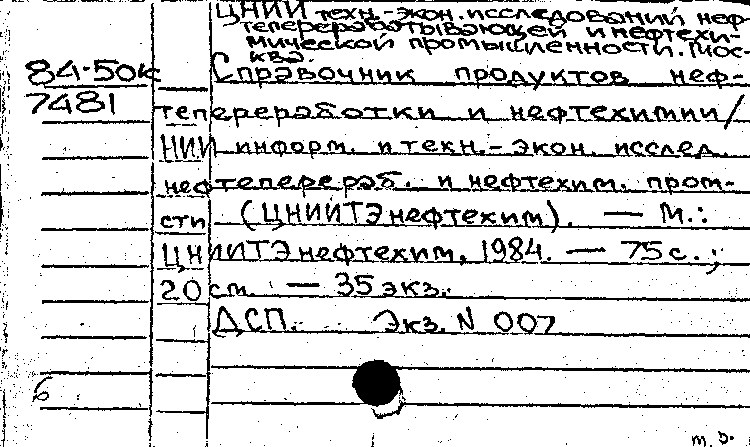 ЦНИИ техн.-экон. исследований неф-
теперерабатывающей и нефтехи-
мической промышленности. Мос-
ква.
84-50к Справочник продуктов неф-
7481 тепереработки и нефтехимии/
НИИ информ. и техн.-экон. исслед.
нефтеперераб. и нефтехим. пром-
сти (ЦНИИТЭнефтехим). — М.:
ЦНИИТЭнефтехим, 1984. — 75 с.;
20 см — 35 экз.
ДСП. Экз. N 007
6